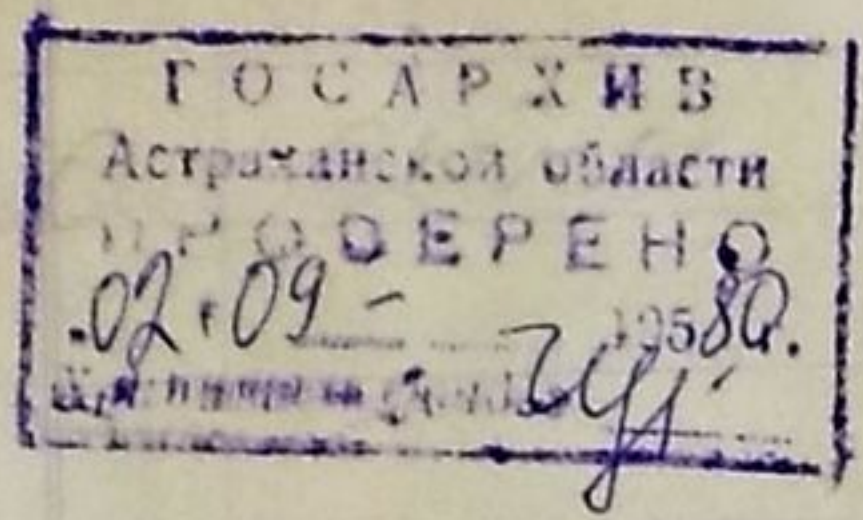 ГОСАРХИВ
Астраханской области
ПРОВЕРЕНО
02.09 195 80.